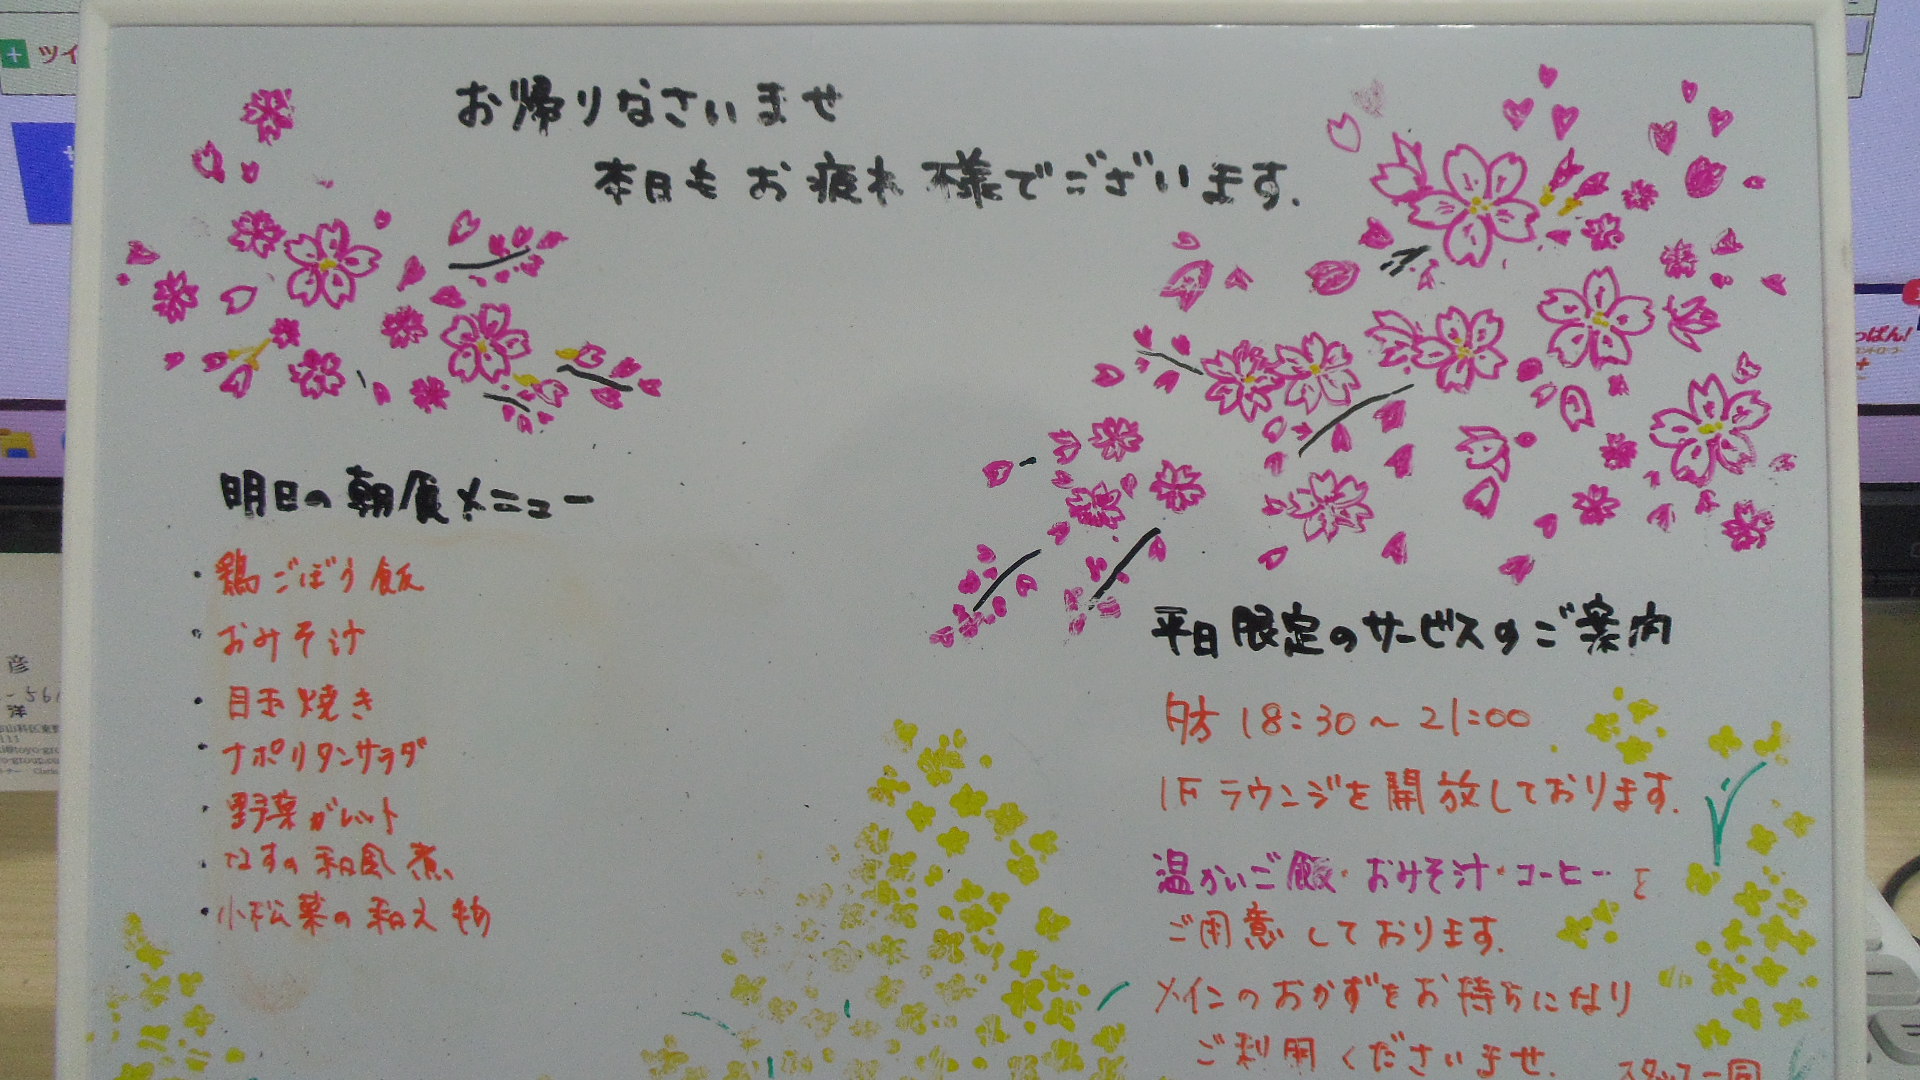 お帰りなさいませ
本日もお疲れ様でございます.
明日の朝食メニュー
・鶏ごぼう飯
・おみそ汁
・目玉焼き
・ナポリタンサラダ
・野菜ガレット
・なすの和風煮
・小松菜の和え物
平日限定のサービスのご案内
夕方 18:30～21:00
1Fラウンジを開放しております.
温かいご飯・おみそ汁・コーヒーを
ご用意しております.
メインのおかずをお持ちになり
ご利用くださいませ.
スタッフ一同
ツイ
彦
-561
洋
っぱん!